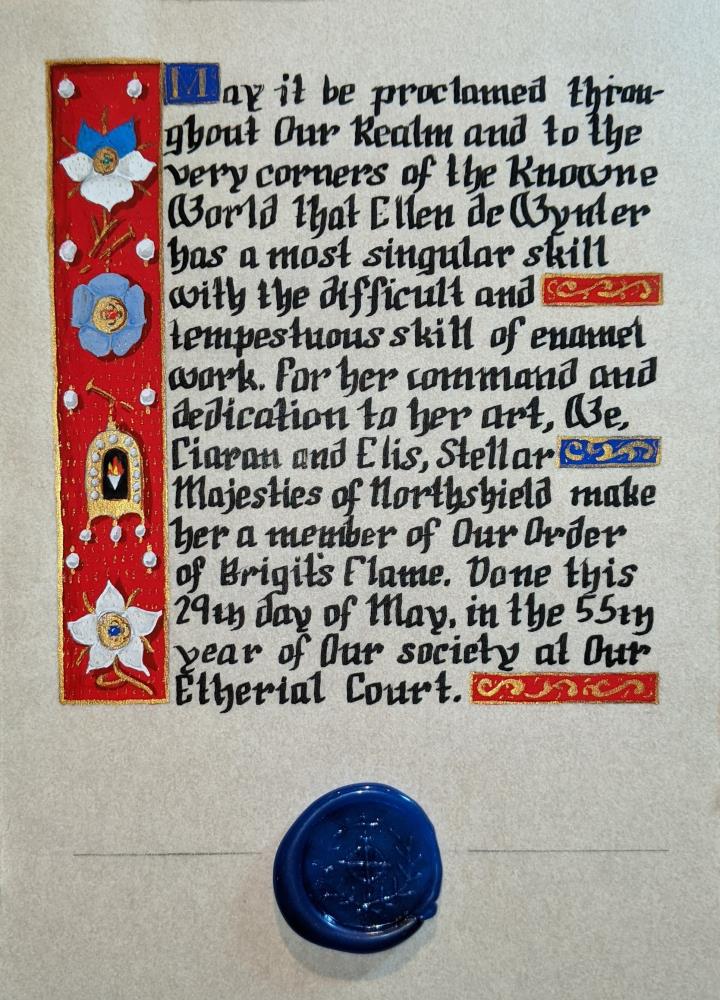 May it be proclamed throu-
ghout Our Realm and to the
very corners of the Knowne
World that Ellen de Wynter
has a most singular skill
with the difficult and
tempestuous skill of enamel
work. For her command and
dedication to her art, We,
Ciaran and Elis, Stellar
Majesties of Northshield make
her a member of Our Order
of Brigit's Flame. Done this
29th day of May, in the 55th
year of Our society at Our
Etherial Court.